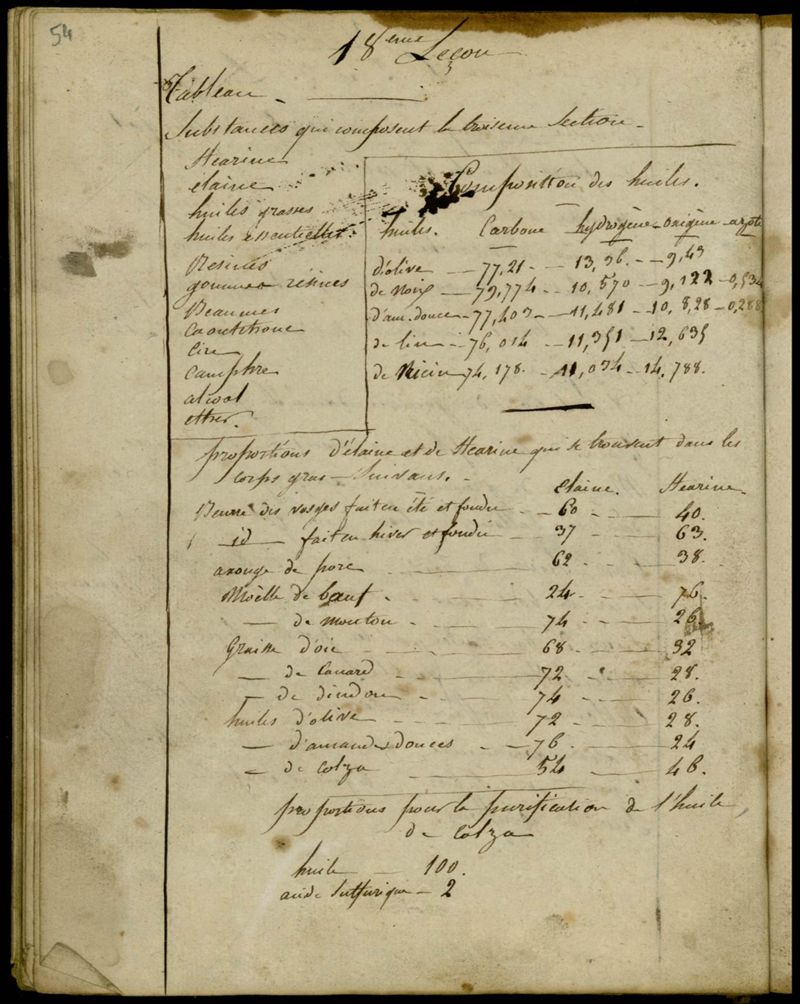 54
18eme Leçon
Tableau
Substances qui composent la troisieme Section
Stearine
elaine
huiles grasses
huiles essentielles
Resines
gommes résines
Beaumes
Caoutchouc
Cire
Camphre
alcool
ether.
Composition des huiles.
huiles. Carbone hydrogène oxigène azote
d'olive — 77,21 — 13,36 — 9,43
de noix — 79,774 — 10,570 — 9,122 — 0,534
d'am. douce — 77,403 — 11,481 — 10,828 — 0,288
de lin — 76,014 — 11,351 — 12,635
de Ricin 74,178. — 11,034 — 14,788.
proportions d'élaine et de Stearine qui se trouvent dans les
corps gras Suivans.
Elaine. Stearine
Beurre des vosges fait en été et fondu — 60 — 40.
id fait en hiver et fondu — 37 — 63.
axonge de porc — 62 — 38.
Moëlle de bœuf — 24 — 76.
— de mouton — 74 — 26.
Graisse d'oie — 68 — 32
— de Canard — 72 — 28.
— de dindon — 74 — 26.
huiles d'olive — 72 — 28.
— d'amandes douces — 76 — 24
— de Colza — 54 — 46.
proportions pour la purification de l'huile
de Colza
huile — 100.
acide Sulfurique — 2